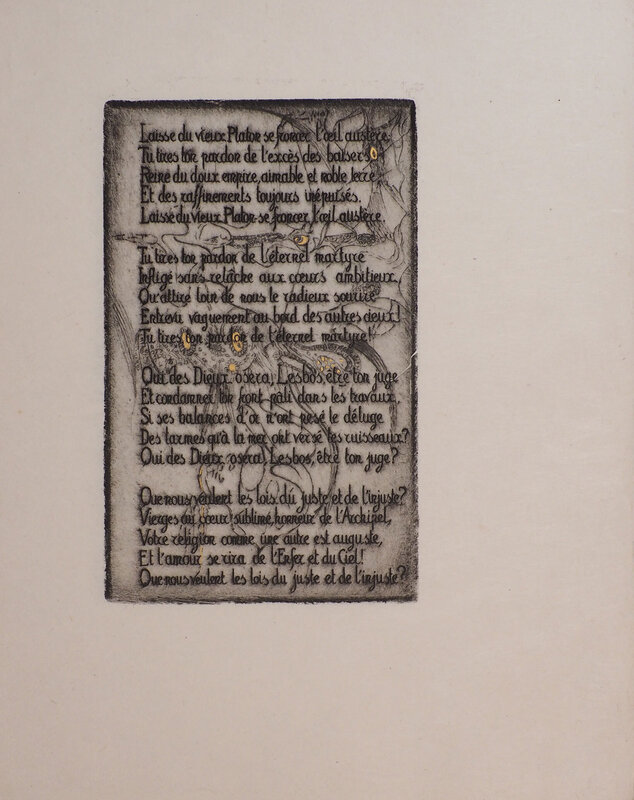 Laisse du vieux Platon se froncer l'œil austère.
Tu tires ton pardon de l'excès des baisers
Reine du doux empire, aimable et noble terre
Et des raffinements toujours inépuisés.
Laisse du vieux Platon se froncer l'œil austère.
Tu tires ton pardon de l'éternel martyre
Infligé sans relâche aux cœurs ambitieux.
Qu'attire loin de nous le radieux sourire
Entrevu vaguement au bord des autres cieux!
Tu tires ton pardon de l'éternel martyre!
Qui des Dieux osera, Lesbos, être ton juge
Et condamner ton front pâli dans les travaux,
Si ses balances d'or n'ont pesé le déluge
Des larmes qu'à la mer ont versé tes ruisseaux?
Qui des Dieux osera, Lesbos, être ton juge?
Que nous veulent les lois du juste et de l'injuste?
Vierges au cœur sublime, honneur de l'Archipel,
Votre religion comme une autre est auguste,
Et l'amour se rira de l'Enfer et du Ciel!
Que nous veulent les lois du juste et de l'injuste?